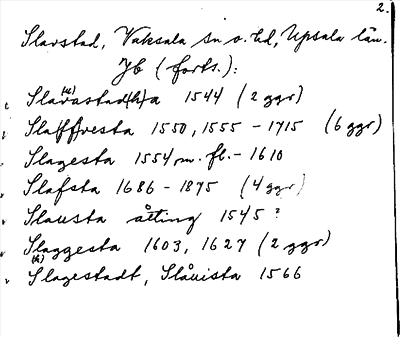 2.
Slavstad, Vaksala sn o. hd, Upsala län.
Jb (forts.):
Sla(u)vastad(h)a 1544 (2 ggr)
Sla(f)fvesta 1550, 1555 - 1715 (6 ggr)
Slagesta 1554 m. fl. - 1610
Slafsta 1686 - 1875 (4 ggr)
Slausta åtting 1545?
Slaggesta 1603, 1627 (2 ggr)
Slagestadt, Slåuista 1566